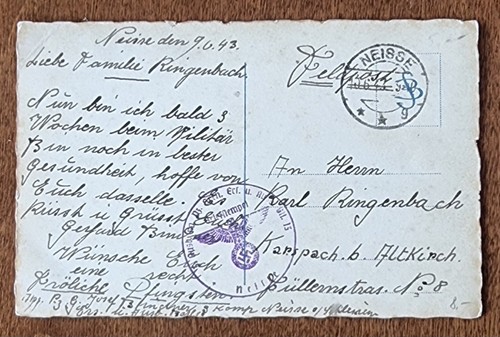 Neisse den 9.6.43.
Liebe Familie Ringenbach
Nun bin ich bald 3
Wochen beim Militär
Bin noch in bester
Gesundheit, hoffe von
Euch dasselle.
Küsst u Grüsst Euch
Wünsche Euch
eine recht
Fröliche Pfingsten
Feldpost
NEISSE
g
An Herrn
Karl Ringenbach
Karspach b. Altkirch.
Füllernstras. No 8
Neisse